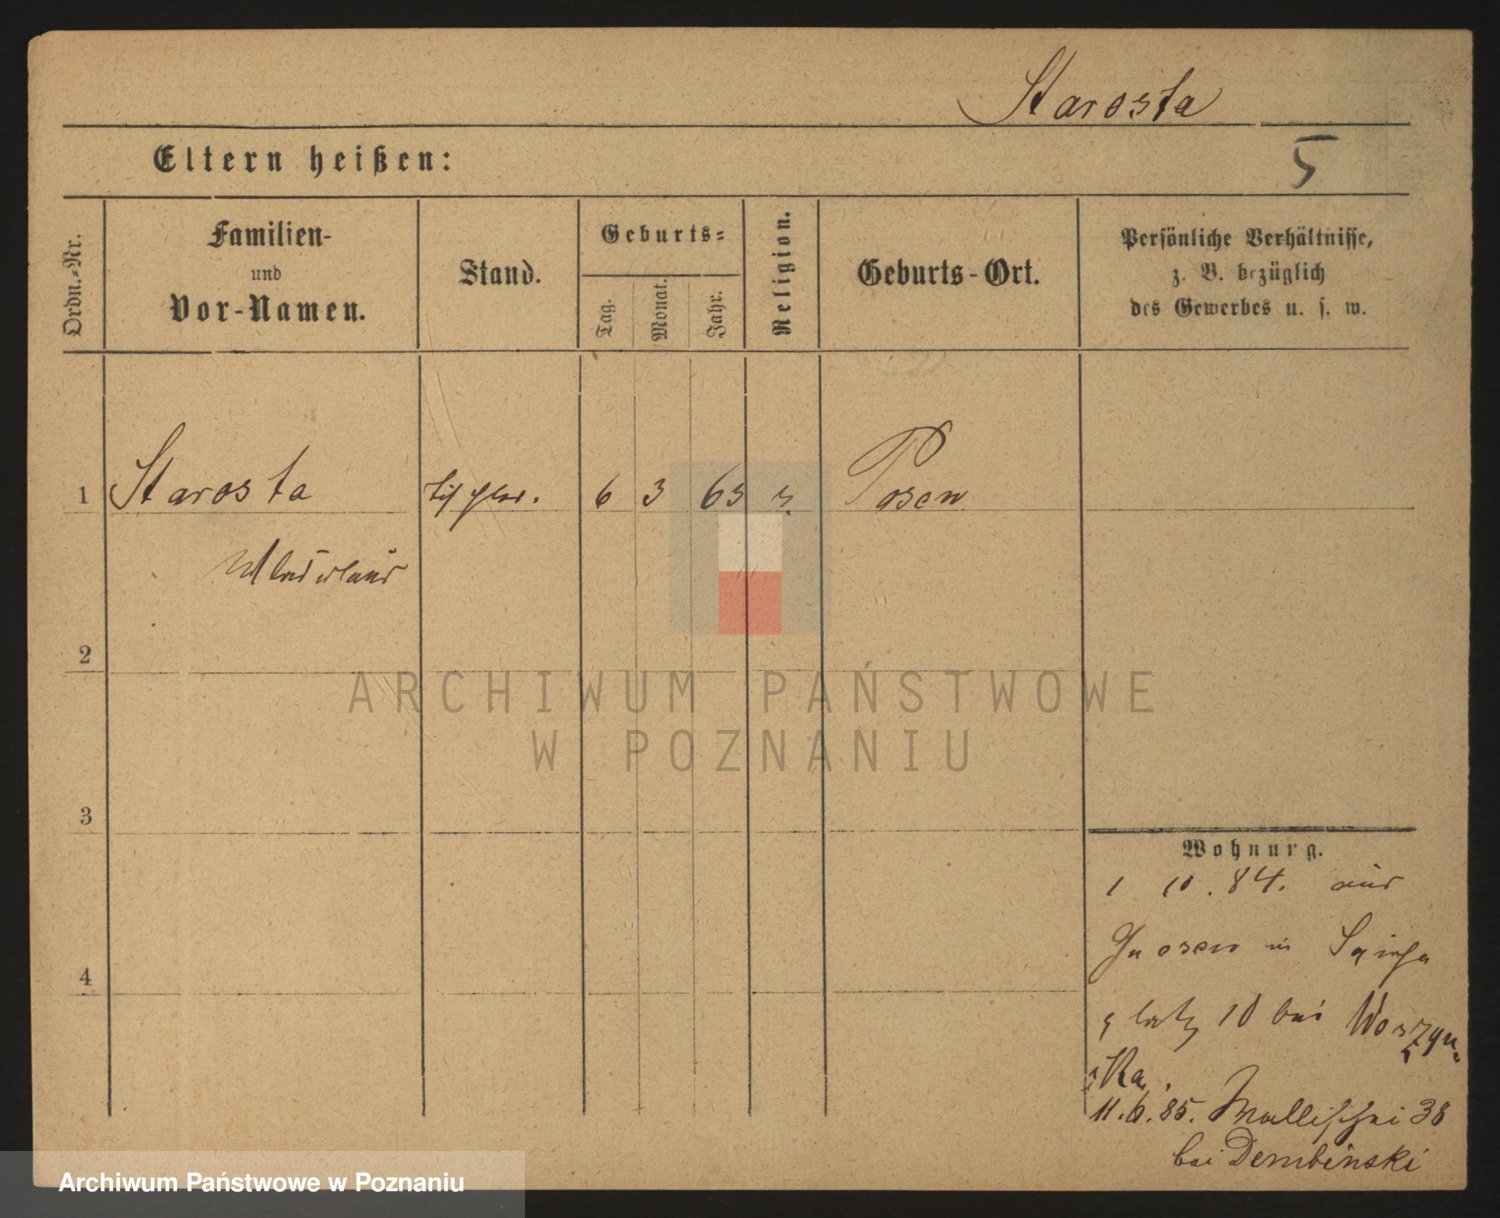 Starosta
5
Eltern heißen:
Ordn.-Nr.
Familien-
und
Vor-Namen.
Stand.
Geburts-
Tag.
Monat.
Jahr.
Religion.
Geburts-Ort.
Persönliche Verhältnisse,
z. B. bezüglich
des Gewerbes u. s. w.
1 Starosta Tischler. 6 3 63 Posen
Wladislaus
2
ARCHIWUM PAŃSTWOWE
W POZNANIU
3
Wohnung.
1 10. 84. aus
Gnesen in Sapieha
platz 10 bei
ka.
11.6.85. Wallischei 38
bei Dembinski
4
Archiwum Państwowe w Poznaniu